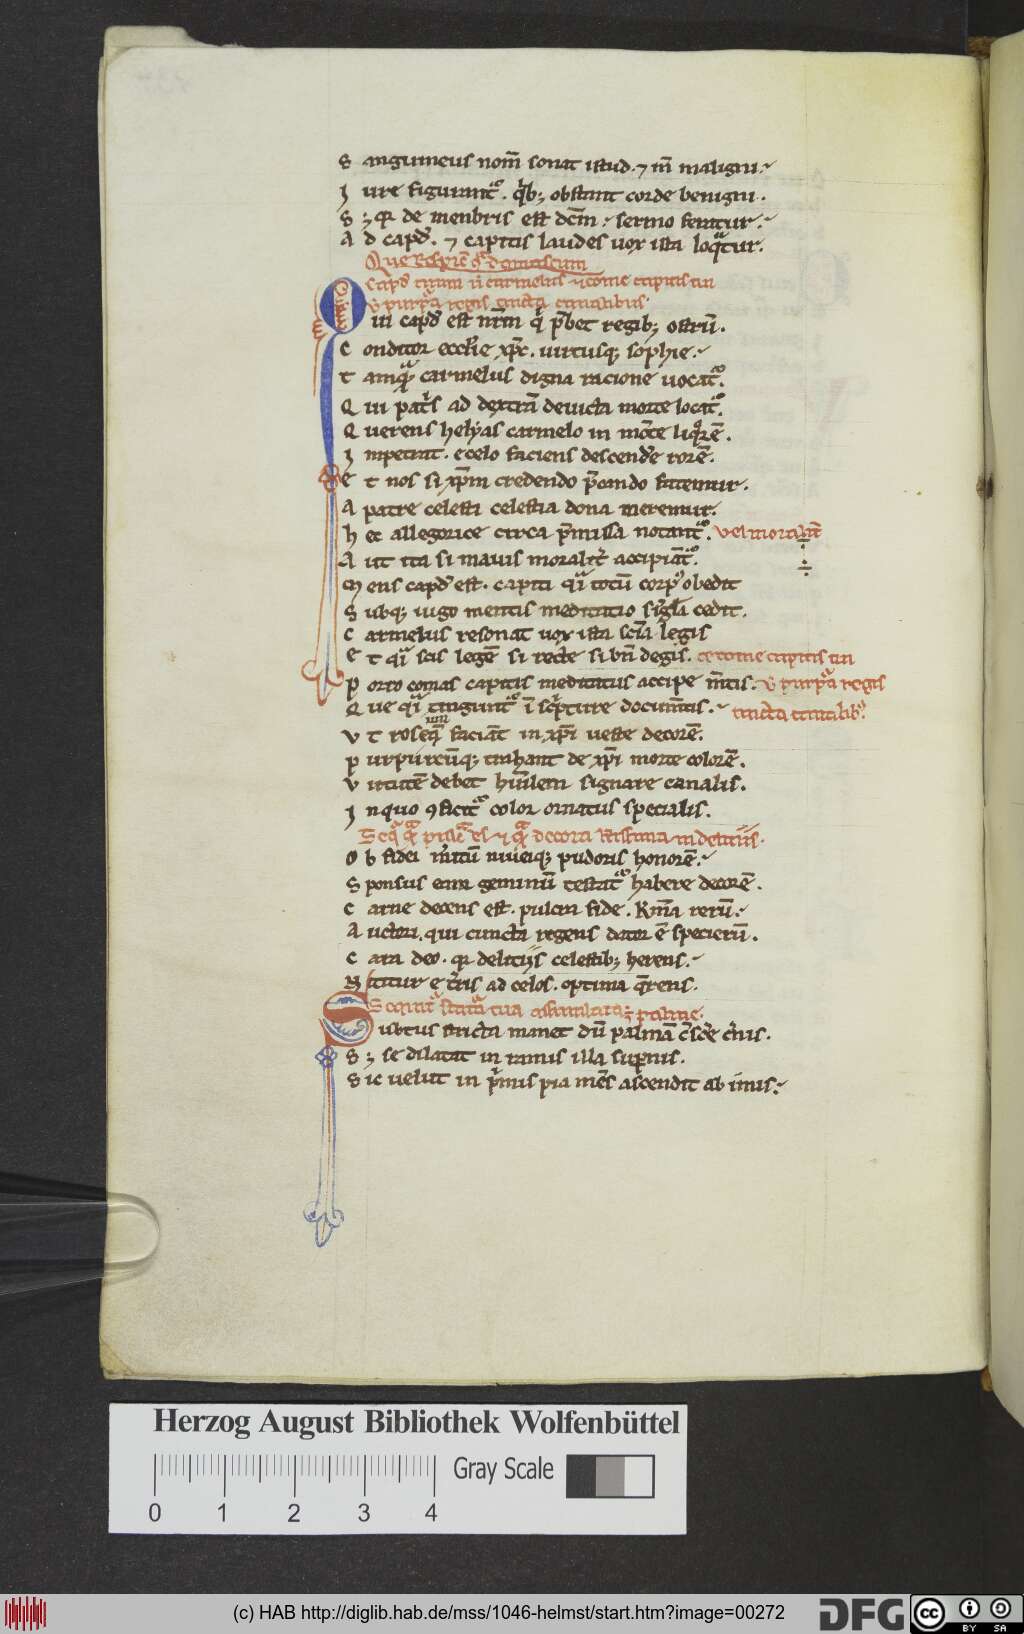 S anguineus nom̄ sonat istud. ⁊ in̄ maligni.
I ure figurant᷑. qͥb; obstant corde benigni.
S ; qꝛ de menbris est dc̄m. sermo feratur.
A d capđ. ⁊ capitis laudes uox ista loqͣtur.
Que respic̄ damascum
Cap̄d tuum ut carmelus ⁊ come capitis tui
ut purpᷓa regis uincta canalibus.
Qui cap̄d est nr̄m qͥ p̄bet regib; ostrū.
C onditor eccl̄ie xp̄c. uirtusq; sophie.
T amqͣ carmelus digna racione uocat᷑.
Q ui pat̄s ad dextrā deuicta morte locat᷑.
Q uerens helyas carmelo in mōte liqͦrē.
I npetrat. e celo faciens descende rorē.
E t nos si xp̄m credendo p̄cando fatemur.
A patre celesti celestia dona meremur.
H ec allegorice circa p̄missa notant᷑. vel moralit̄
A ut ita si mauis moralit̄ accipiāt᷑.
M ens cap̄d est. capiti qͣi totū corpꝰ obedit
S ubq; iugo mentis meditatio sigͣla cedit.
C armelus resonat uox ista scīa legis
E t qͣi scis legē si recte si bn̄ degis. et come capitis tui
P orro comas capitis meditatus accipe m̄tis. ut purpᷓa regis
Q ue qͣi tingunt᷑ ī scͥpture documtis. uincta canalibꝰ
V t roseā faciāt in xp̄i ueste decorē.
P urpureūq; trahant de xp̄i morte colorē.
V irtutē debet humilem signare canalis.
I n quo ꝯficit᷑ color ornatus specialis.
qͣ pulcͣ es ⁊ qͣ decora kͥssima in deliciis.
O b fidei m̄itū niueiq; pudoris honorē.
S ponsus eam geminū testat᷑ habere decorē.
C arne decens est. pulcra fide. kͥma rerū.
A uctori. qui cuncta regens dator ē specierū.
C ara deo. qꝛ deliciis celestib; herens.
N ititur e t̄ris ad celos. optima q̄rens.
Statͣ tua assimilata ē palme.
Subtus stricta manet dū palma c̄sc̄e c̄nis.
S ; se dilatat in ramis illa sup̄nis.
S ic uelut in p̄mis pia mēs ascendit ab imis.
Herzog August Bibliothek Wolfenbüttel
Gray Scale
0 1 2 3 4
(c) HAB http://diglib.hab.de/mss/1046-helmst/start.htm?image=00272
DFG
cc BY SA